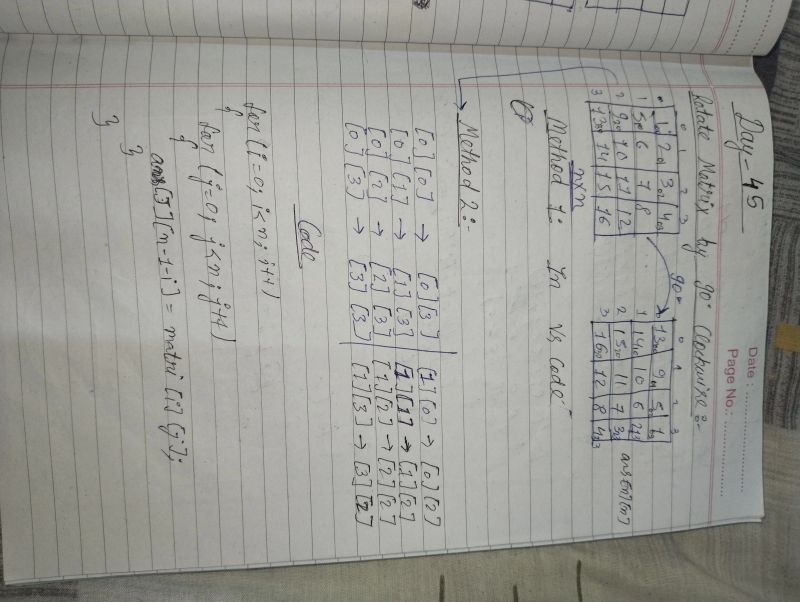 Date : ..................
Page No.: ..................
Day - 45
Rotate Matrix by 90° Clockwise :-
90°
0 1 2 3
0 1 2 3 4
1 5 6 7 8
2 9 10 11 12
3 13 14 15 16
n×n
0 1 2 3
13 9 5 1
1 14 10 6 2
2 15 11 7 3
3 16 12 8 4
ans[n][n]
Method 1: In Vs Code
Method 2:-
[0][0] → [0][3] [1][0] → [0][2]
[0][1] → [1][3] [1][1] → [1][2]
[0][2] → [2][3] [1][2] → [2][2]
[0][3] → [3][3] [1][3] → [3][2]
Code
for(i=0; i<n; i++)
{
for(j=0; j<n; j++)
{
ans[j][n-1-i] = matri[i][j];
}
}